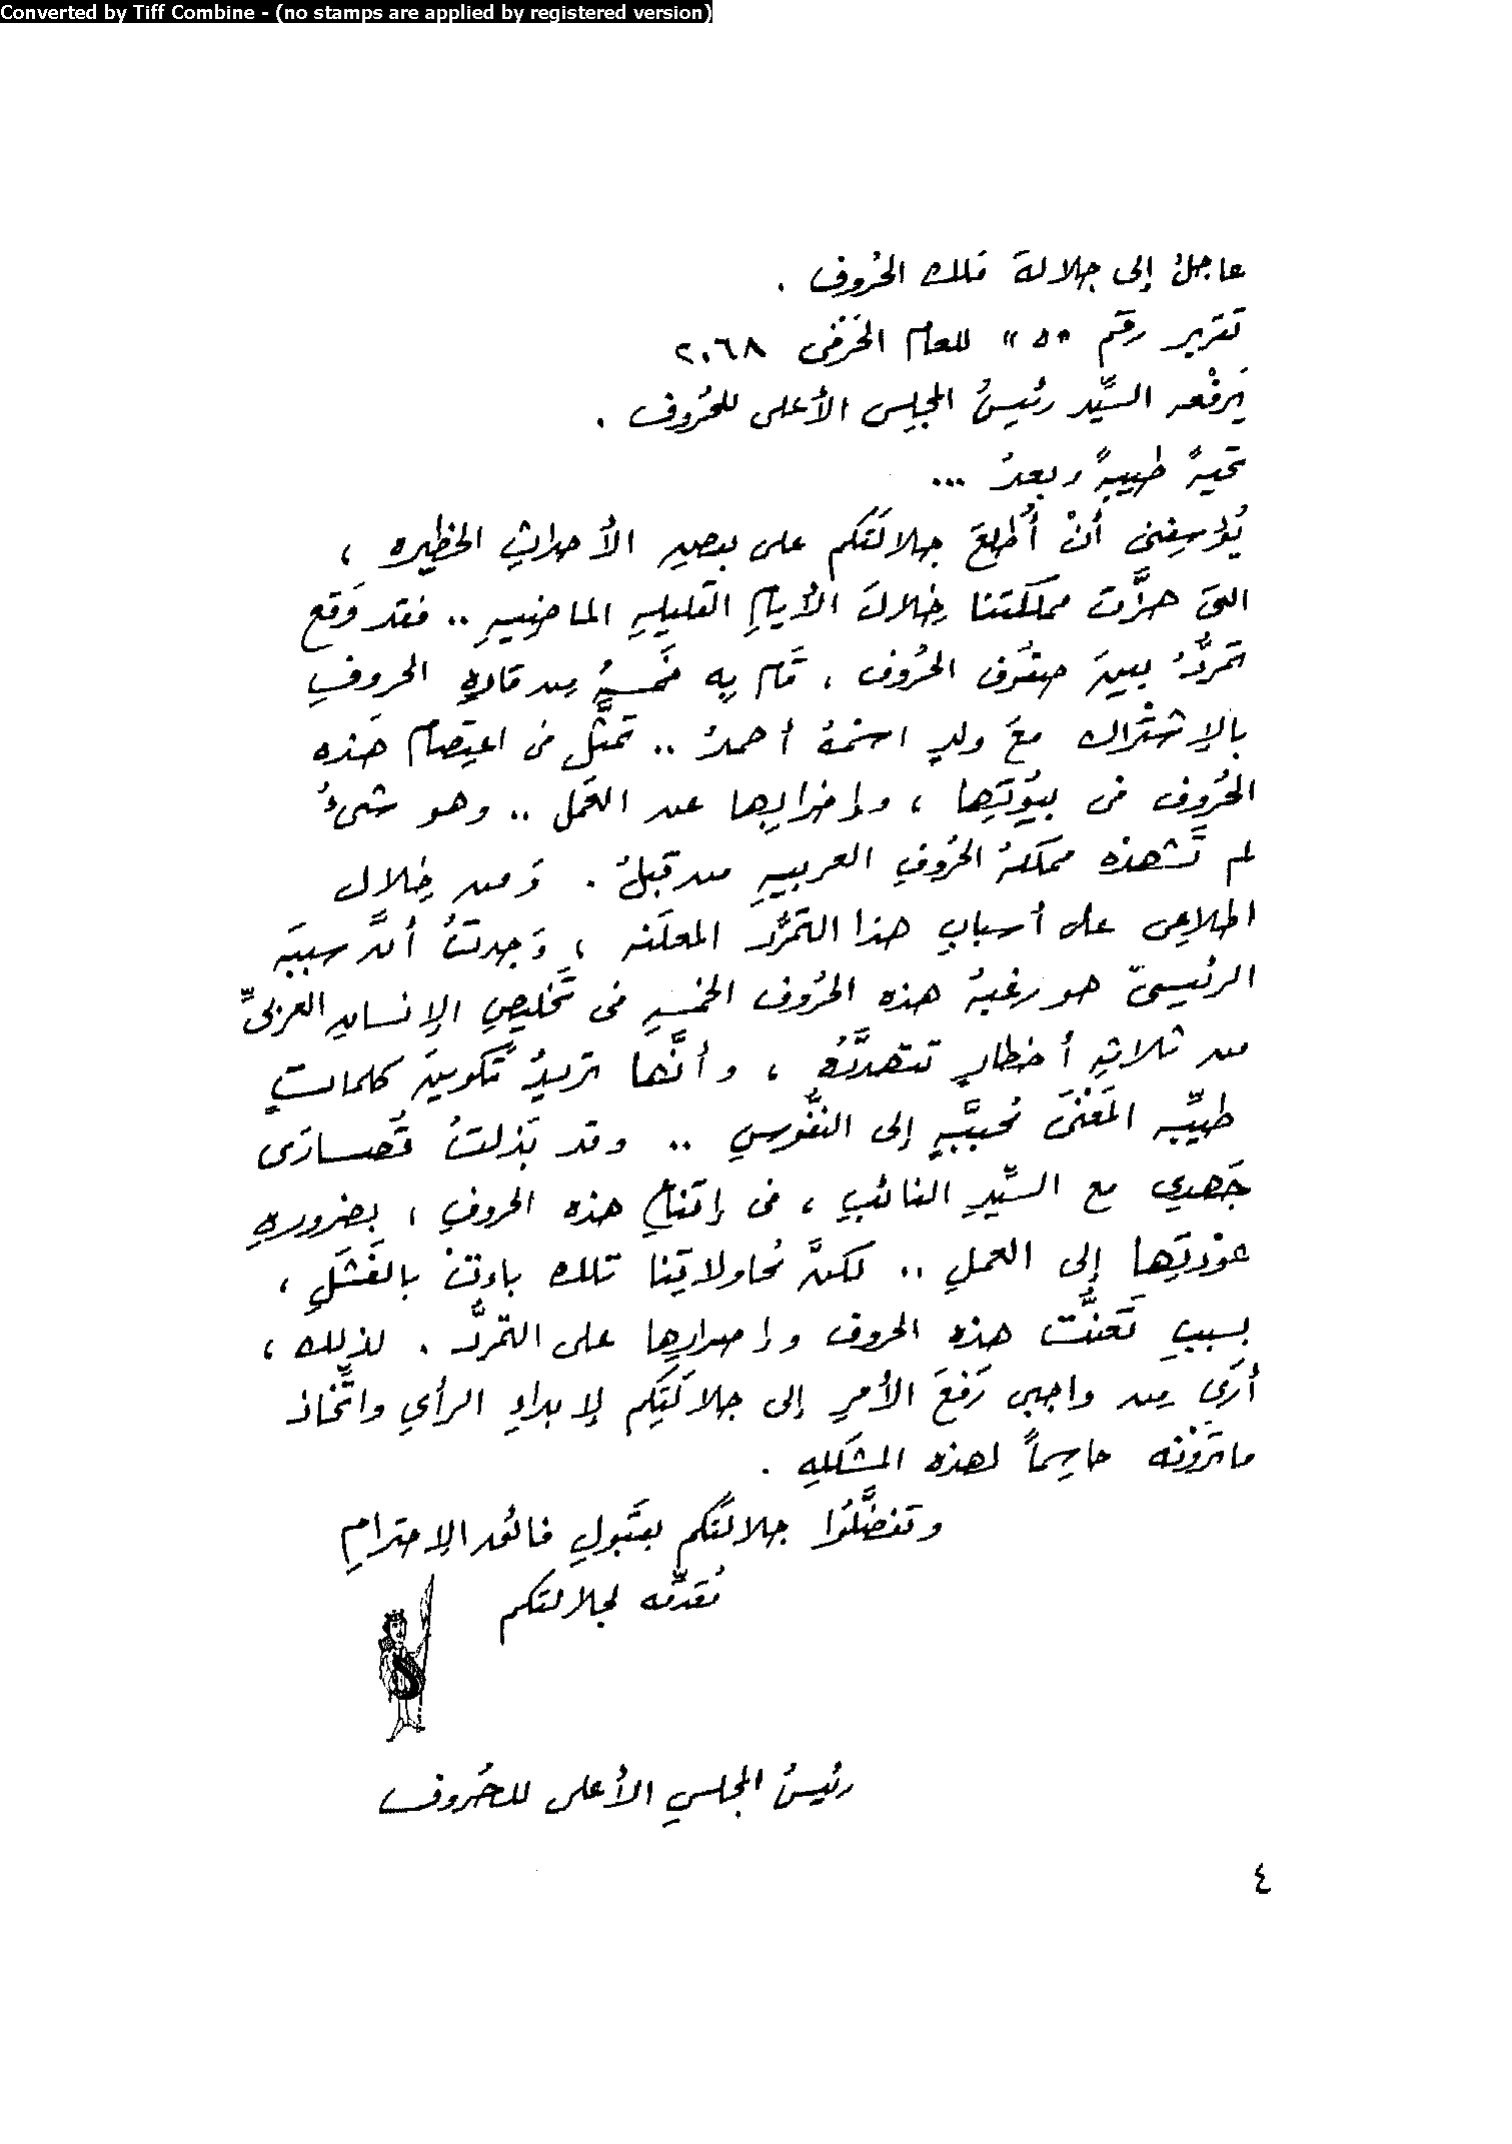 Converted by Tiff Combine - (no stamps are applied by registered version)
عاجلٌ إلى جلالة مَلك الحُروف .
تقرير رقم « ٥ » للعام الحَرفى ٢٠٦٨
يَرفْعه السيِّد رئيسُ المجلِس الأعلى للحُروف .
تحيةً طيبةً وبعدُ ...
يُؤسِفنى أنْ أُطلعَ جلالَتَكم على بعضِ الأحداثِ الخطيره ،
التى هزَّت مملكتنا خِلالَ الأيامِ القليلةِ الماضيةِ .. فقد وَقع
تمرُّدٌ بينَ صفوف الحُروف ، قَام بِه خَمسةٌ مِن قادةِ الحروفِ
بالاِشتْراك معَ ولدٍ اسْمهُ أحمدُ .. تمثَّل فى اعتِصام هَذه
الحُروفِ فى بيُوتِها ، وإضرابِها عن العَمل .. وهو شىءٌ
لم تَشهدْه مملكةُ الحُروفِ العربيةِ من قبلُ . وَمن خِلال
اطلاعِى على أسبابِ هذا التمرُّد المعلَنه ، وَجدتُ أنَّ سببَه
الرئيسىّ هو رغبةُ هذه الحُروف الخمسةِ فى تَخليصِ الإنسانِ العربىِّ
من ثلاثةِ أخطارٍ تتهدَّدُه ، وأنَّها تريدُ تَكوينَ كلماتٍ
طيِّبه المَعْنَى مُحبَّبةٍ إلى النفُّوسِ .. وقد بَذلتُ قُصارَى
جَهدى مع السيِّدِ النائبِ ، فى إقناعِ هذه الحروفِ ، بضرورةِ
عوْدتِها إلى العملِ .. لكنَّ مُحاولاتِنا تلك باءتْ بالفَشَلِ ،
بسببِ تَعنُّت هذه الحروف وإصرارِها على التمرُّد . لذلِك ،
أرَى مِن واجبى رَفعَ الأمرِ إلى جلالَتِكم لإبداءِ الرأىِ واتِّخاذ
ما تَروْنه حاسِماً لهذه المشكلةِ .
وتفضَّلُوا جلالتَكم بقَبولِ فائق الاِحترامِ
مُقدِّمه لجلالتكم
رئيسُ المجلسِ الأعلى للحُروف
٤